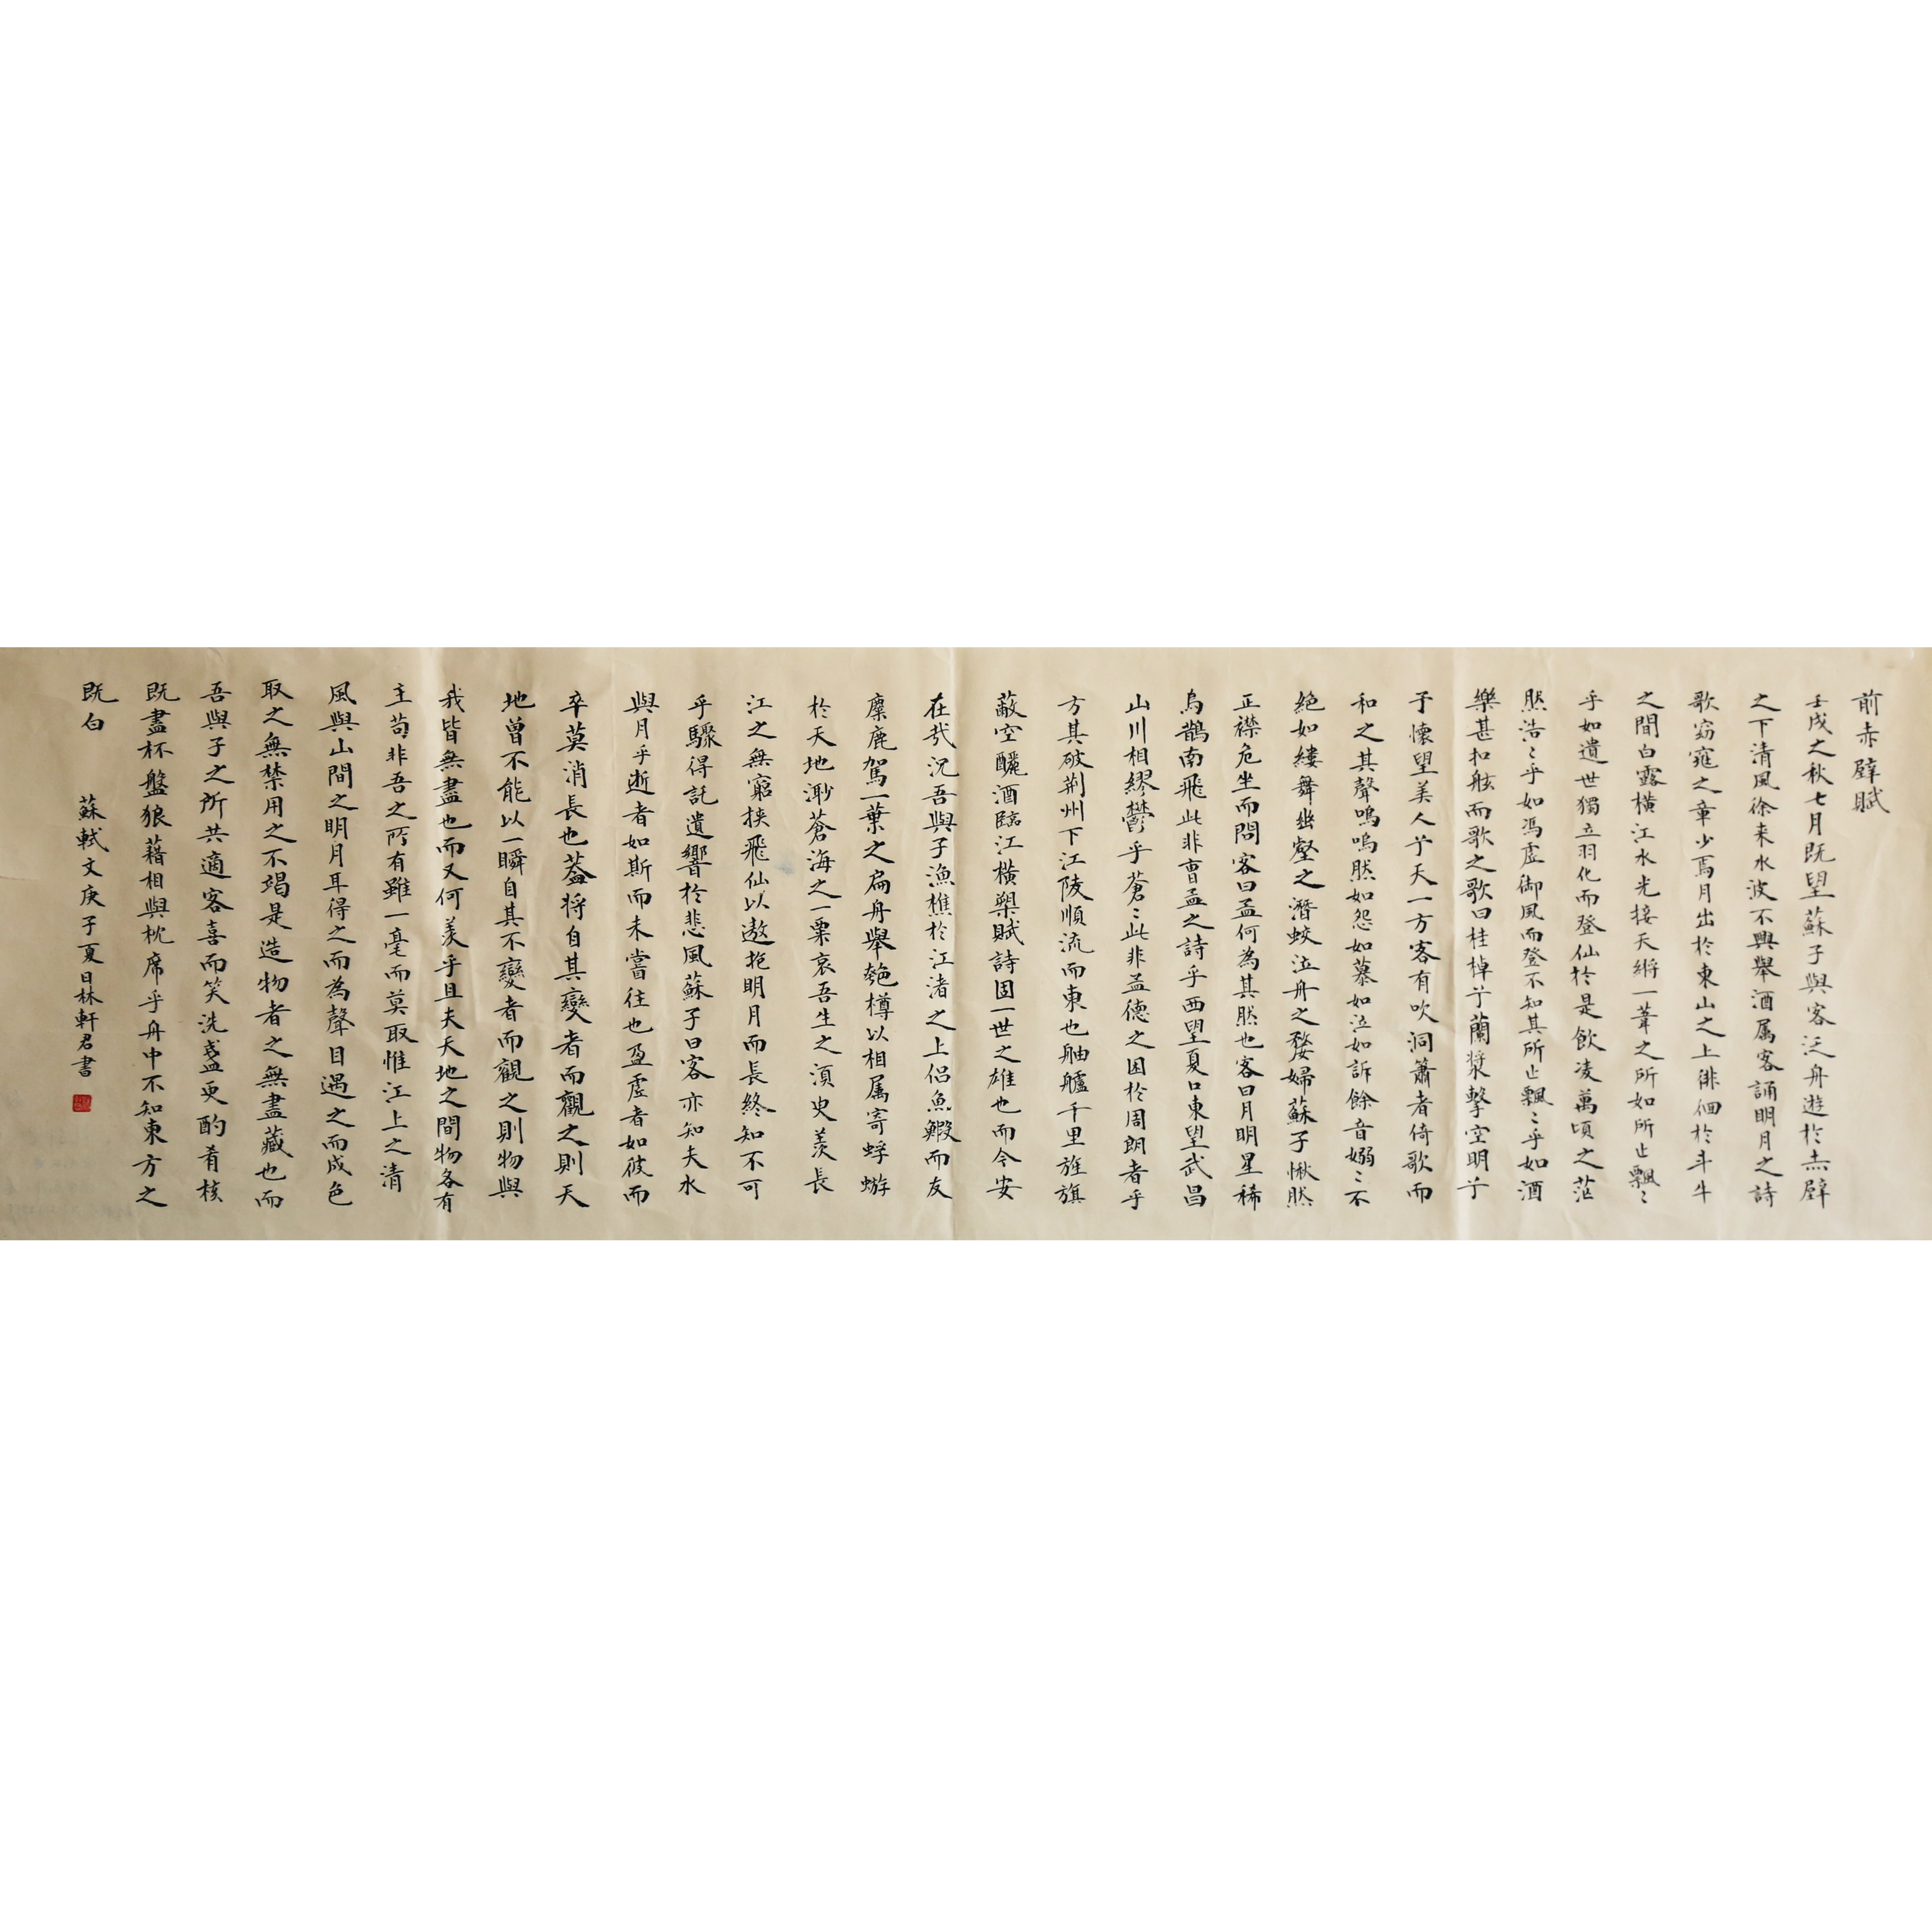 前赤壁賦
壬戌之秋七月既望蘇子與客泛舟遊於赤壁
之下清風徐来水波不興舉酒属客誦明月之詩
歌窈窕之章少焉月出於東山之上徘徊於斗牛
之間白露橫江水光接天縱一葦之所如所止飄〻
乎如遺世獨立羽化而登仙於是飲凌萬頃之茫
然浩〻乎如馮虛御風而登不知其所止飄〻乎如酒
樂甚扣舷而歌之歌曰桂棹兮蘭槳擊空明兮
予懷望美人兮天一方客有吹洞簫者倚歌而
和之其聲嗚嗚然如怨如慕如泣如訴餘音嫋〻不
絕如縷舞幽壑之潛蛟泣舟之嫠婦蘇子愀然
正襟危坐而問客曰孟何為其然也客曰月明星稀
烏鵲南飛此非曹孟之詩乎西望夏口東望武昌
山川相繆鬱乎蒼〻此非孟德之困於周朗者乎
方其破荆州下江陵順流而東也舳艫千里旌旗
蔽空釃酒臨江橫槊賦詩固一世之雄也而今安
在哉况吾與子漁樵於江渚之上侣魚鰕而友
麋鹿駕一葉之扁舟舉匏樽以相属寄蜉蝣
於天地渺蒼海之一粟哀吾生之須臾羨長
江之無窮挾飛仙以遨抱明月而長終知不可
乎驟得託遺響於悲風蘇子曰客亦知夫水
與月乎逝者如斯而未嘗往也盈虛者如彼而
卒莫消長也葢将自其變者而觀之則天
地曾不能以一瞬自其不變者而觀之則物與
我皆無盡也而又何羨乎且夫天地之間物各有
主苟非吾之所有雖一毫而莫取惟江上之清
風與山間之明月耳得之而為聲目遇之而成色
取之無禁用之不竭是造物者之無盡藏也而
吾與子之所共適客喜而笑洗盞更酌肴核
既盡杯盤狼藉相與枕席乎舟中不知東方之
既白
蘇軾文庚子夏日林軒君書